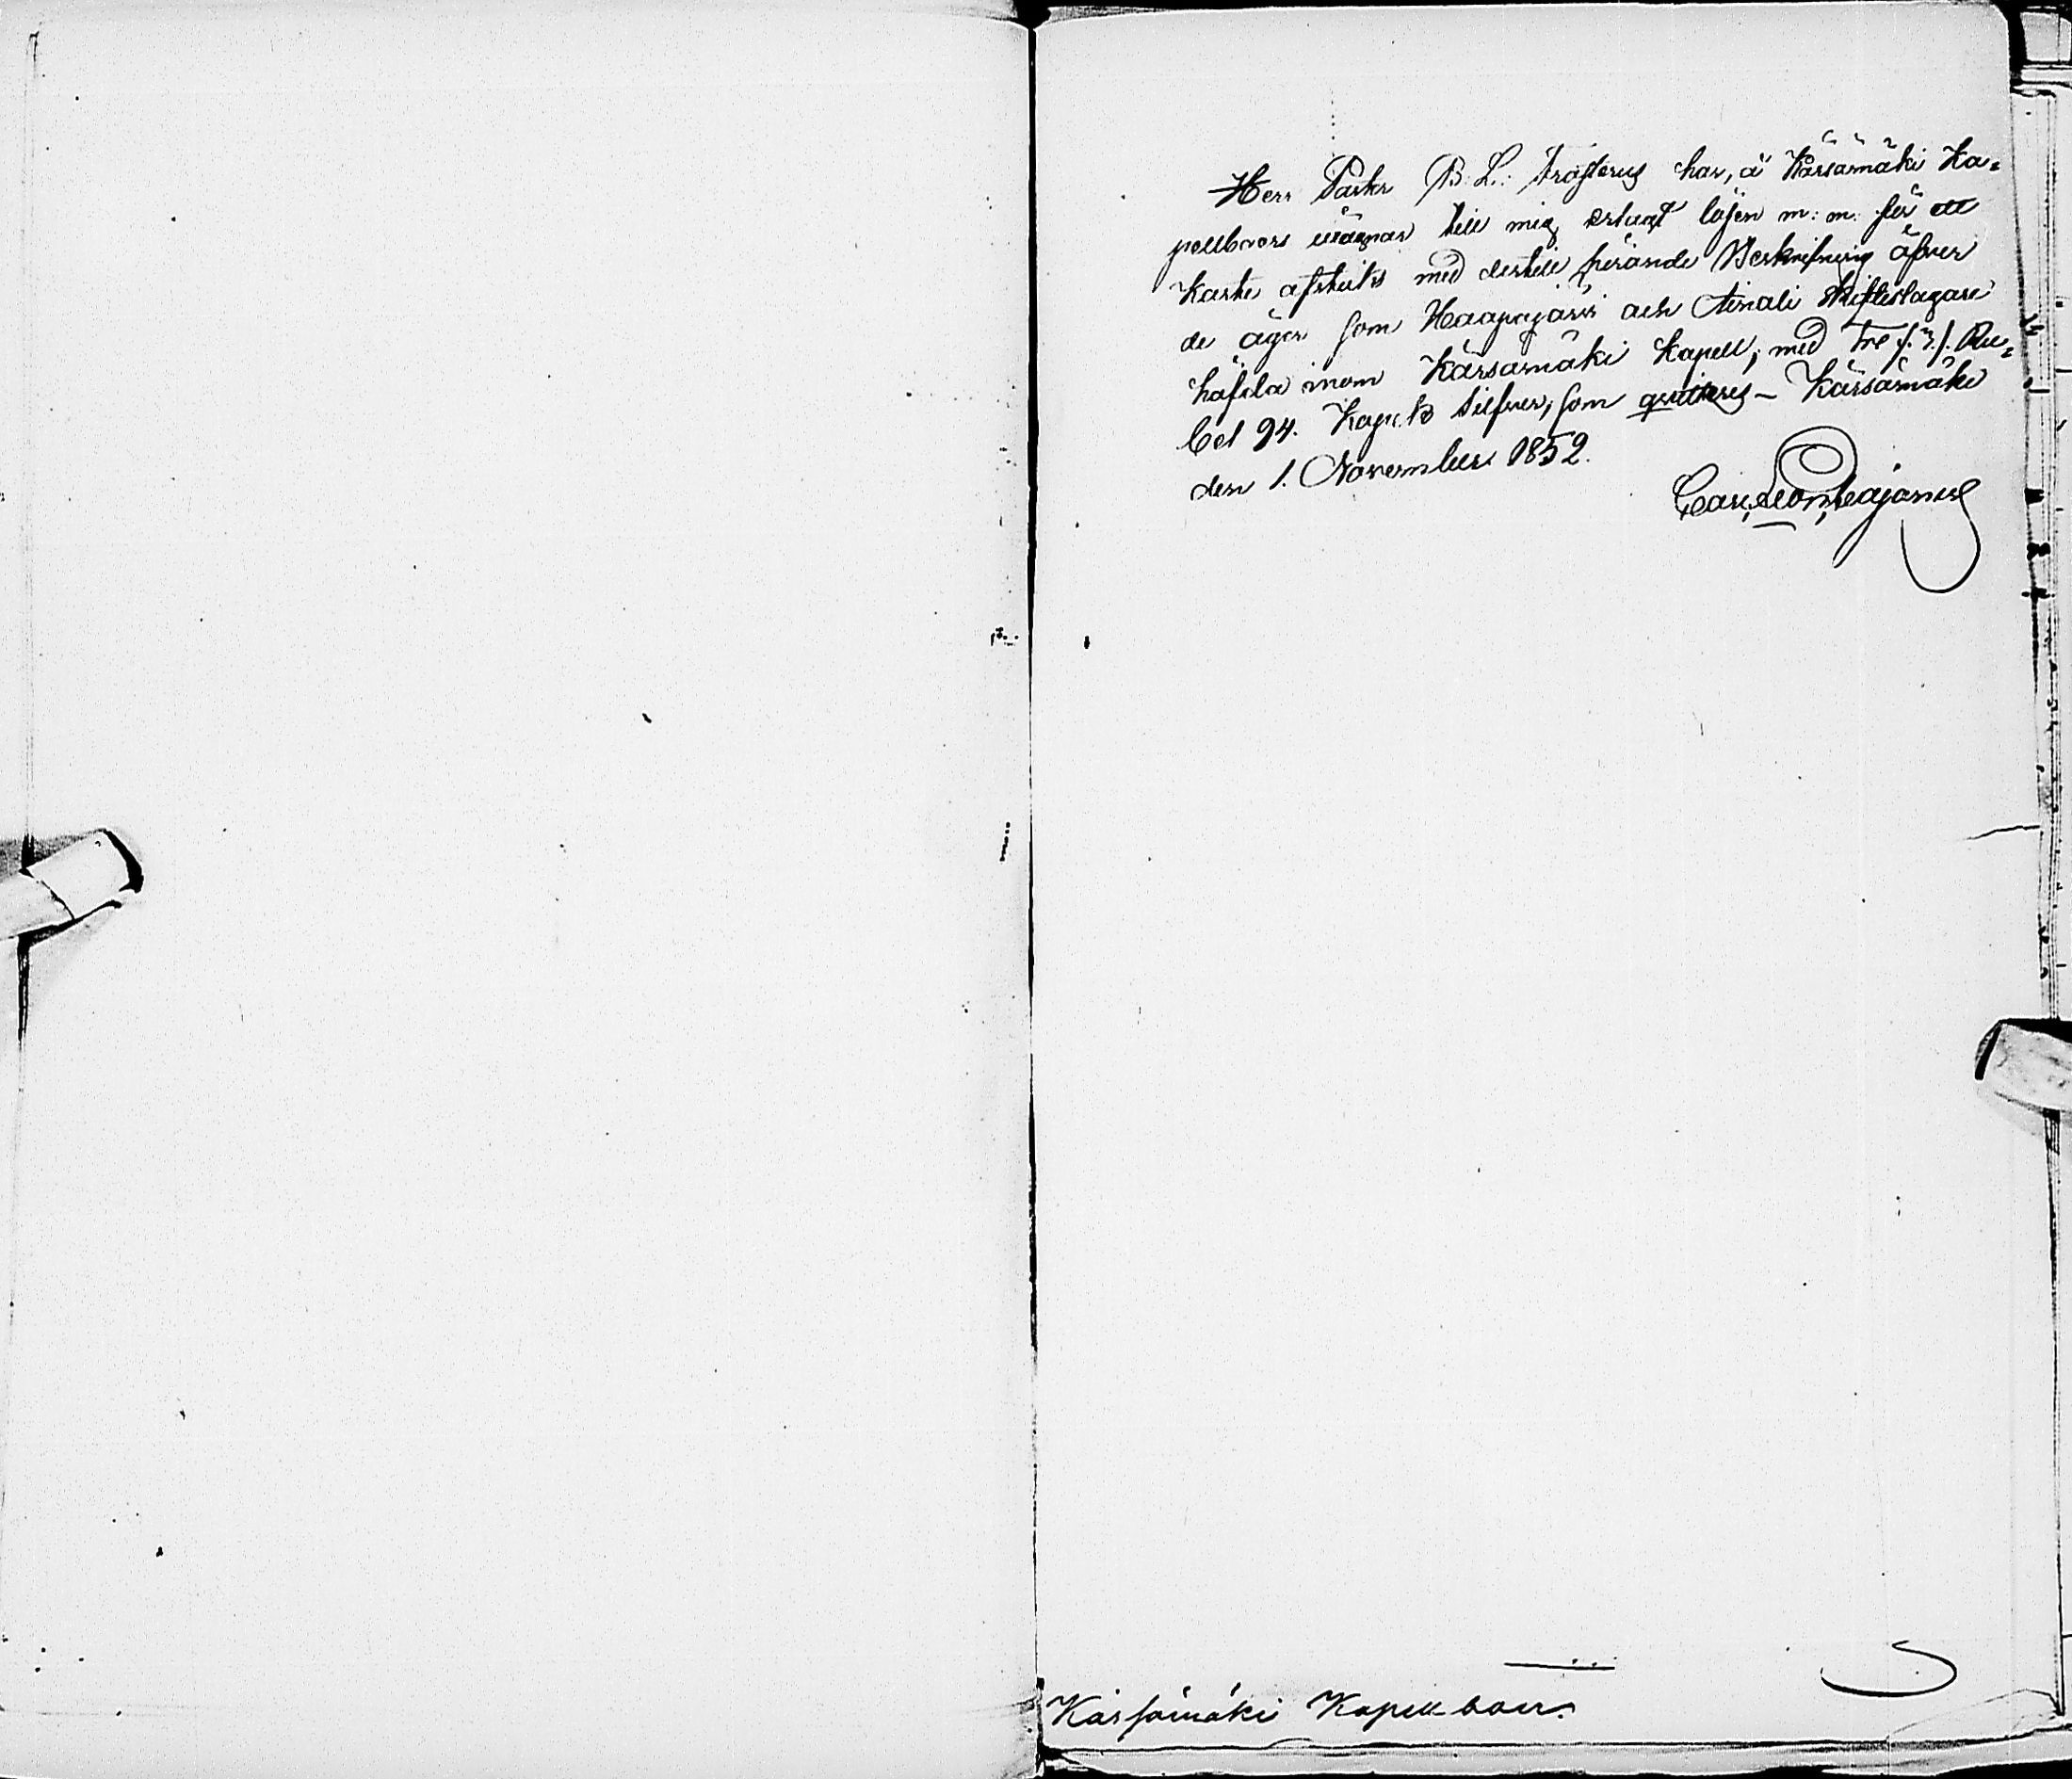 Herr Pastor B. L. Frosterus har, å Kärsämäki Ka=
pellboers vägnar till mig erlagt lösen m: m: för ett
Karte afstick med dertill hörande Beskrifning öfver
de ägor som Haapajärvi och skifteslagare
häfda inom Kärsämäki Kapell, med Tre /: 3 :/ Ru=
bel 94. Kop. Silfver, som quitteras – Kärsämäki
den 1. November 1852.
Cajanus
Kärsämäki Kapellboer.